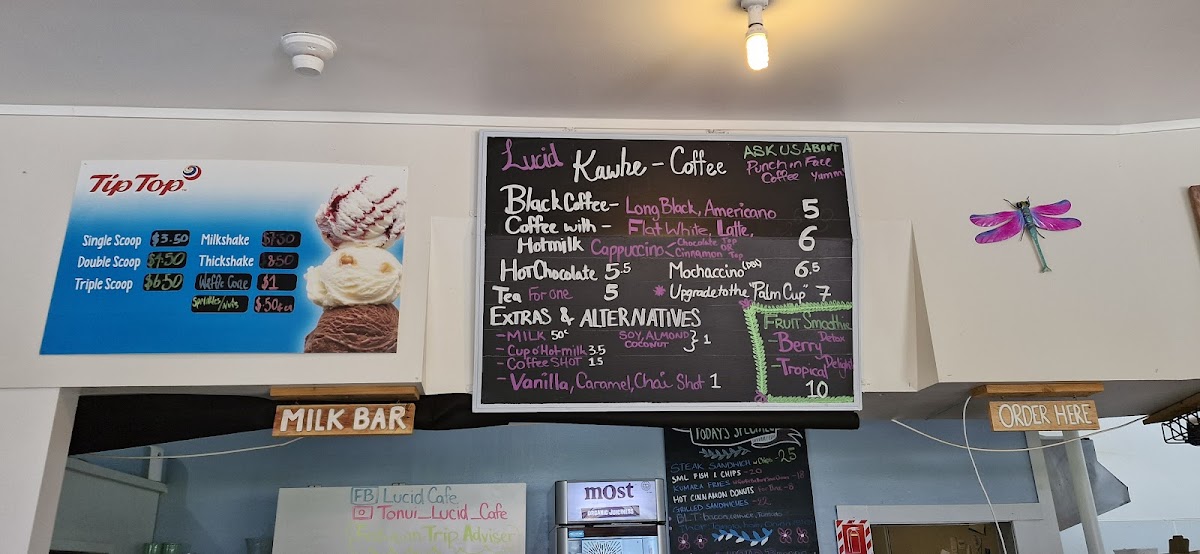 Tip Top
Single Scoop $3.50
Double Scoop $4.50
Triple Scoop $6.50
Milkshake $7.50
Thickshake 8.50
Waffle Cone $1
Sprinkles/Nuts $.50 ea
Lucid Kawhe - Coffee
ASK US ABOUT
Punch in Face
Coffee Yumm
Black Coffee - Long Black, Americano 5
Coffee with - Flat White, Latte,
Hotmilk Cappuccino < Chocolate Top OR Cinnamon Top 6
Hot Chocolate 5.5
Mochaccino 6.5
Tea For one 5
* Upgrade to the "Palm Cup" 7
EXTRAS & ALTERNATIVES
- MILK 50c
SOY, ALMOND
COCONUT } 1
- Cup o' Hot milk 3.5
- Coffee SHOT 1.5
- Vanilla, Caramel, Chai Shot 1
FRUIT Smoothie
- Berry Detox
- Tropical Delight
10
MILK BAR
ORDER HERE
FB Lucid Cafe
Tonui_Lucid_Cafe
Trip Adviser
most
ORGANIC JUICERERS
TODAY'S SPECIALS
STEAK SANDWICH w Chips - 25
SML FISH & CHIPS - 20
KUMARA FRIES - 18
HOT CINNAMON DONUTS - 8
GRILLED SANDWICHES - 12
BLT: